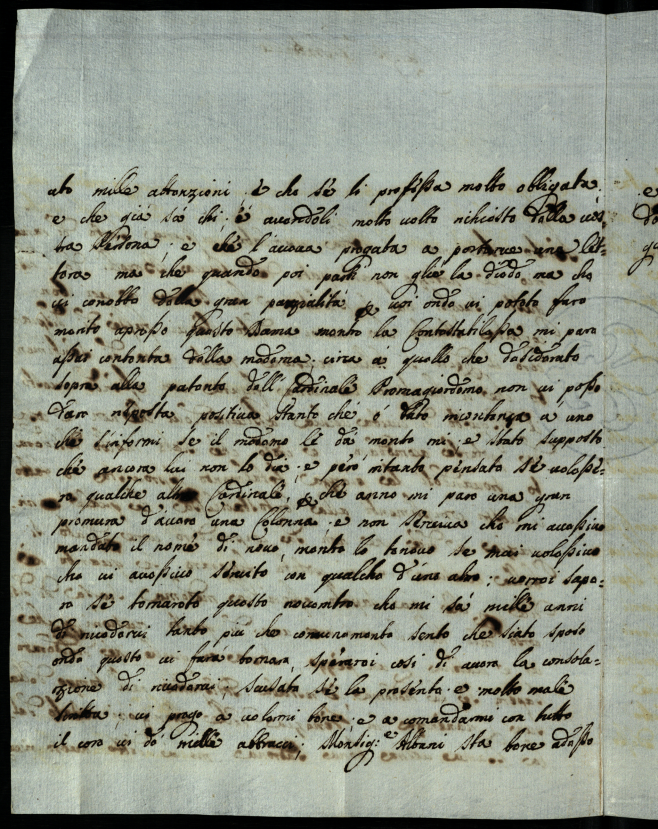 ato mille attenzioni è che sè ti professa molto obligata
e che già sà chi è avendoli molto volte richiesto dalla vos-
tra Persona, e ché l'aveva pregata a portarve una let-
tera ma che quando poi partì non glie la diede ma che
vi conobbe della gran parzialità voi onde vi potete fare
merito apresso questo Dama mentre la Contestabilessa mi pare
assai contenta della madema circa a quello che desiderate
sopra alla patente dell Cardinale Promagiordomo non vi posso
dare risposta positiva stante ché é dato incombenza a uno
che s'informi se il medemo le dà mentre mi è stato supposto
che ancora lui non le dia e però ritanto pensate sè volesse-
ro qualche altro Cardinale, ché anno mi pare una gran
premura d'avere una Colonna e non serviva che mi avessivo
mandato il nome di novo, mentre lo tenevo se mai volessivo
che vi avessivo servito con qualche d'uno altro; vorrei sape-
re sè tornarete questo novembre che mi sà mille anni
di rivedervi tanto più che comunemente sento che siate sposo
onde questo vi farà tornare, sperarei così di avere la consola-
zione di rivedervi, scusate sè la presente è molto male
scritta, vi prego a volermi bene, e a comandarmi con tutto
il core vi dò mille abbracci, Monsig:re Albani sta bene adesso